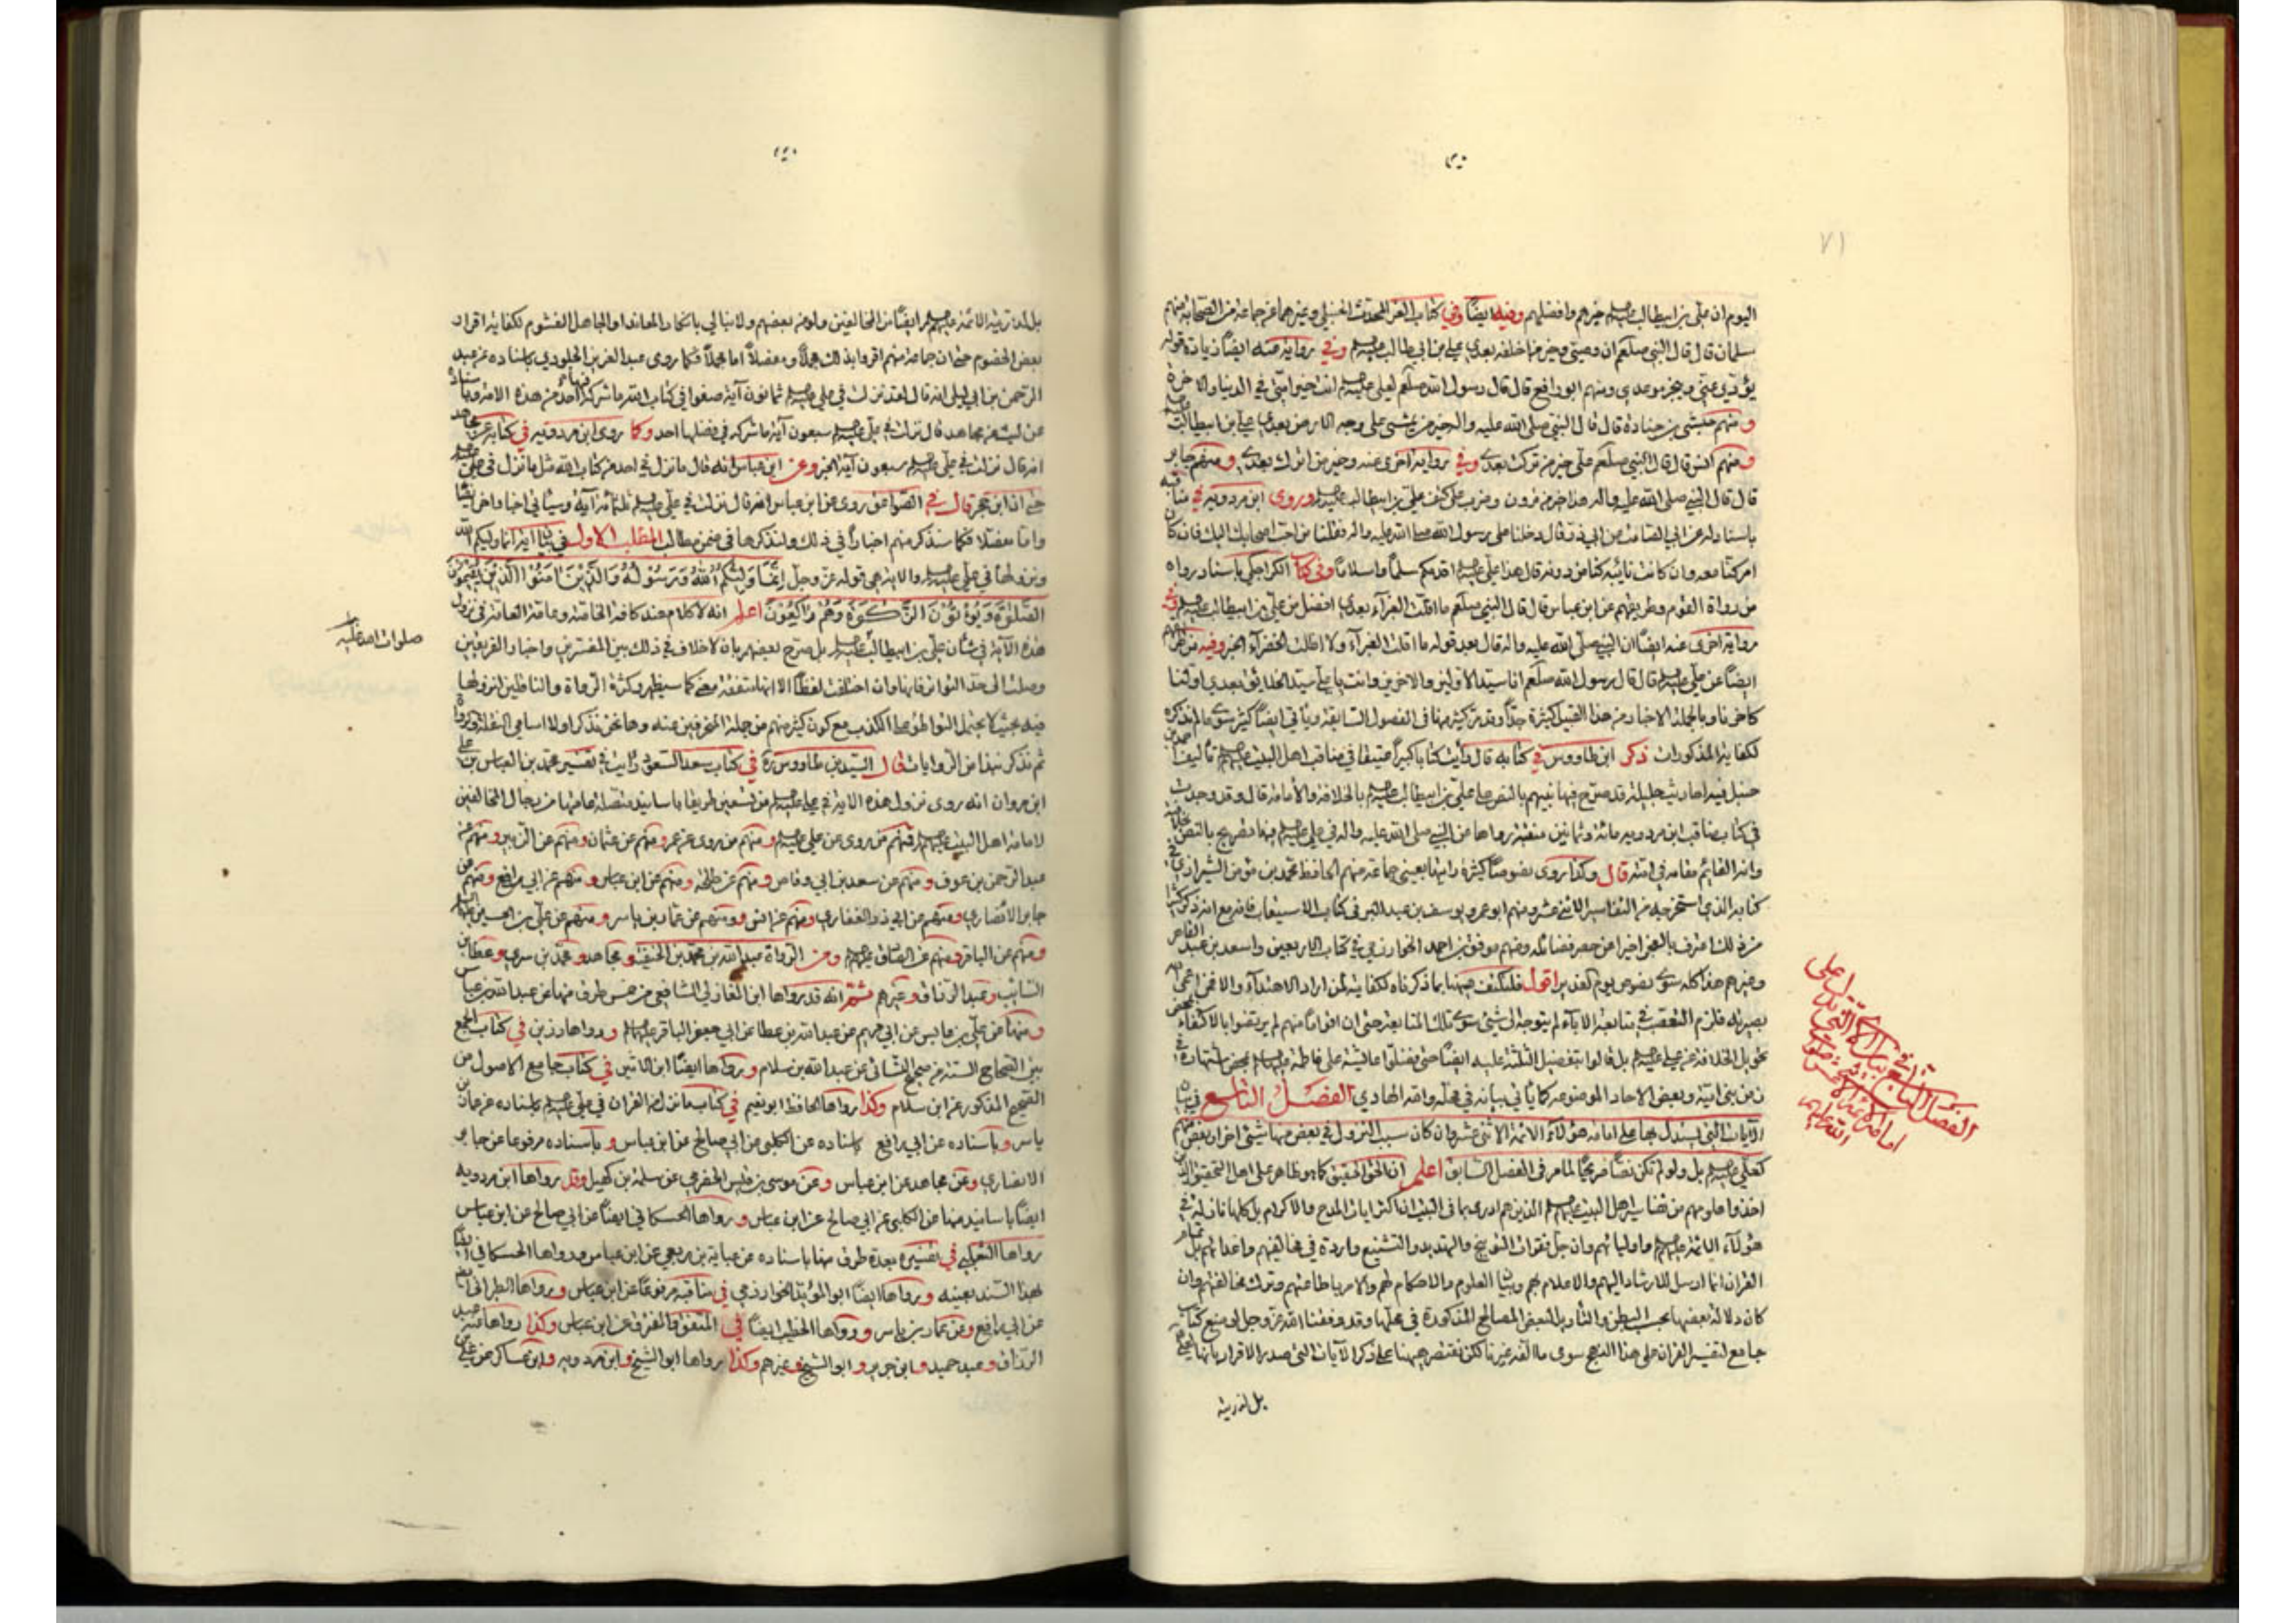 ٧١
اليوم ان علي بن ابيطالب خيرهم وافضلهم وفيه ايضاً وفي كتاب العز المحدث الحنبلي وغيرهما عن جماعة من الصحابة منهم
سلمان قال قال النبي صلعم ان وصيي وخير من اخلفه بعدي علي بن ابي طالب وفي رواية عنه ايضاً زيادة قوله
يؤدي عني وينجز موعدي ومنهم ابو رافع قال قال رسول الله صلعم لعلي انت خير امتي في الدنيا والآخرة
ومنهم حبشي بن جنادة قال قال النبي صلى الله عليه واله خير من يمشي على وجه الارض بعدي علي بن ابيطالب
ومنهم انس قال قال النبي صلعم علي خير من تركت بعدي وفي رواية اخرى عنه وخير من اترك بعدي ومنهم جابر
قال قال النبي صلى الله عليه واله وضرب على كتف علي بن ابيطالب وروى ابن مردويه في مناقبه
باسناد له عن ابي ذر وقال دخلنا على رسول الله صلى الله عليه واله فقلنا من احب اصحابك اليك فان كان
امر كنا معه وان كانت نائبة كنا من دونه قال هذا علي اقدمكم سلماً واسلاماً وفي كتاب الكراجكي باسناد رواه
من رواة القوم وطريقهم عن ابن عباس قال قال النبي صلعم ما اقلت الغبراء بعدي افضل من علي بن ابيطالب وفي
رواية اخرى عنه ايضاً ان النبي صلى الله عليه واله قال بعد قوله ما اقلت الغبراء ولا اظلت الخضراء الخبر وفيه من طرقهم
ايضاً عن علي قال قال رسول الله صلعم انا سيد الاولين والاخرين وانت يا علي سيد الخلائق بعدي اولنا
كآخرنا وبالجملة الاخبار من هذا القبيل كثيرة جداً وقد مر كثير منها في الفصول السابقة ويأتي ايضاً كثير سوى ما لم نذكره
لكفاية المذكورات ذكر ابن طاووس في كتابه قال رأيت كتاباً كبيراً في مناقب اهل البيت تأليف احمد بن
حنبل فيه احاديث جليلة قد صرح فيها نبيهم بالنص على علي بن ابيطالب بالخلافة والامامة قال وقد وجدت
في كتاب مناقب ابن مردويه مائة وثمانين منقبة رواها عن النبي صلى الله عليه واله في علي فيها تصريح بالنص بخلافته
وانه القائم مقامه في امته قال وكذا روى نصوصاً كثيرة جماعة منهم الحافظ محمد بن مؤمن الشيرازي في
كتابه الذي استخرجه من التفاسير الاثني عشر ومنهم ابو عمرو يوسف بن عبد البر في كتاب الاستيعاب فانه مع انه ذكر كثيرا
من ذلك اعترف بالعجز اخيرا عن حصر فضائله ومنهم موفق بن احمد الخوارزمي في كتاب الاربعين واسعد بن عبد القاهر
وغيرهم هذا كله سوى نصوص يوم الغدير اقول فلنكتف هيهنا بما ذكرناه لكفايته لمن اراد الاهتداء والا فمن اعمى الله
بصيرته فلزم التعصب في متابعة الآباء لم يتوجه الى شئ سوى تلك المتابعة حتى ان اقواماً منهم لم يرتضوا بالاكتفاء بمحض
تحويل الخلافة عن علي بل قالوا بتفضيل الثلثة عليه ايضاً حتى فضلوا عايشة على فاطمة بمحض شهادة
زمن بني امية وبعض الآحاد الموضوعة كما يأتي بيانه في محله والله الهادي الفصل التاسع في بيان
الآيات التي يستدل بها على امامة هؤلاء الائمة الاثني عشر وان كان سبب النزول في بعض منها شئ اخر او بعض منهم
كعلي بل ولو لم تكن نصاً صريحاً لما مر في الفصل السابق اعلم ان الحق الحقيق كما هو ظاهر على اهل التحقيق الذين
اخذوا علومهم من اهل البيت الذين هم ادرى بما في البيت ان اكثر ايات المدح والاكرام بل كلها نازلة في
هؤلاء الائمة واوليائهم وان جل فقرات التوبيخ والتهديد والتشنيع واردة في مخالفيهم واعدائهم بل تمام
القران انما ارسل للارشاد اليهم والاعلام بهم وبيان العلوم والاحكام لهم والامر باطاعتهم وترك مخالفتهم وان
كان دلالة بعضها بحسب البطن والتأويل لبعض المصالح المذكورة في محلها وقد وفقنا الله عز وجل لوضع كتاب
جامع لتفسير القران على هذا النهج سوى ما الفه غيرنا لكن نقتصر هيهنا على ذكر الآيات التي صدر الاقرار بانها فيهم
بل لذرية
الفصل التاسع في بيان الآيات التي تدل على
امامة الائمة الاثني عشر صلوات
الله عليهم
بعض الخصوم حتى ان جماعة منهم اقروا بذلك مجملاً ومفصلاً اما مجملاً فكما روى عبد العزيز الجلودي باسناده عن عبد
الرحمن بن ابي ليلى انه قال لقد نزلت في علي ثمانون آية صفوا في كتاب الله ما شركه فيها احد من هذه الامة وباسناده
عن ليث عن مجاهد قال نزلت في علي سبعون آية ما شركه في فضلها احد وكما روى ابن مردويه في كتابه عن مجاهد
انه قال نزلت في علي سبعون آية الخبر وعن ابن عباس انه قال ما نزل في احد من كتاب الله مثل ما نزل في علي
حتى ان ابن حجر قال في الصواعق روى عن ابن عباس انه قال نزلت في علي ثلثمائة آية وسيأتي اخبار اخر ايضاً
واما مفصلاً فكما سنذكر منهم اخباراً في ذلك ولنذكرها في ضمن مطالب المطلب الاول في بيان آية انما وليكم الله
ونزولها في علي والآية هي قوله عز وجل إنما وليكم الله ورسوله والذين آمنوا الذين يقيمون
الصلوة ويؤتون الزكوة وهم راكعون اعلم انه لا كلام عند كافة الخاصة وعامة العامة في نزول
هذه الآية في شأن علي بن ابيطالب بل صرح بعضهم بان لا خلاف في ذلك بين المفسرين واخبار الفريقين
صلوات الله عليه
وصلت الى حد التواتر فانها وان اختلفت لفظاً الا انها متفقة معنى كما سيظهر وكثرة الرواة والناقلين لنزولها
فيه بحيث لا يحتمل التواطؤ على الكذب مع كون كثير منهم من جملة المنحرفين عنه وها نحن نذكر اولا اسامي النقلة والرواة
ثم نذكر نبذا من الروايات قال السيد بن طاووس ره في كتاب سعد السعود رأيت في تفسير محمد بن العباس بن علي
ابن مروان انه روى نزول هذه الآية في علي من تسعين طريقا باسانيد متصلة من رجال المخالفين
لامامة اهل البيت فمنهم من روى عن علي ومنهم من روى عن عمر ومنهم عن عثمان ومنهم عن الزبير ومنهم عن
عبد الرحمن بن عوف ومنهم عن سعد بن ابي وقاص ومنهم عن طلحة ومنهم عن ابن عباس ومنهم عن ابي رافع ومنهم عن
جابر الانصاري ومنهم عن ابي ذر الغفاري ومنهم عن انس ومنهم عن عمار بن ياسر ومنهم عن علي بن الحسين
ومنهم عن الباقر ومنهم عن الصادق ومن الرواة عبد الله بن محمد بن الحنفية ومجاهد ومحمد بن سري وعطا بن
السائب وعبد الرزاق وغيرهم ثم انه قد رواها ابن المغازلي الشافعي من خمس طرق منها عن عبد الله بن عباس
ومنها عن علي بن عابس عن ابي مريم عن عبد الله بن عطا عن ابي جعفر الباقر ورواها رزين في كتاب الجمع
بين الصحاح الستة من صحيح النسائي عن عبد الله بن سلام ورواها ايضاً ابن الاثير في كتاب جامع الاصول من
الصحيح المذكور عن ابن سلام وكذا رواها الحافظ ابو نعيم في كتاب ما نزل من القران في علي باسناده عن عمار بن
ياسر وباسناده عن ابي رافع باسناده عن الكلبي عن ابي صالح عن ابن عباس وباسناده مرفوعا عن جابر
الانصاري وعن مجاهد عن ابن عباس وعن موسى بن قيس الحضرمي عن سلمة بن كهيل وقد رواها ابن مردويه
ايضاً باسانيد منها عن الكلبي عن ابي صالح عن ابن عباس ورواها الحسكاني ايضاً عن ابي صالح عن ابن عباس
رواها الثعلبي في تفسيره بعدة طرق منها باسناده عن عباية بن ربعي عن ابن عباس ورواها الحسكاني ايضاً
بهذا السند بعينه ورواها ايضاً ابو المؤيد الخوارزمي في مناقبه مرفوعاً عن ابن عباس ورواها الطبراني ايضاً
عن ابي رافع وعن عمار بن ياسر ورواها الخطيب ايضاً في المتفق والمفترق عن ابن عباس وكذا رواها عنه عبد
الرزاق وعبد حميد وابن جرير وابو الشيخ وغيرهم وكذا رواها ابو الشيخ وابن مردويه وابن عساكر عن علي